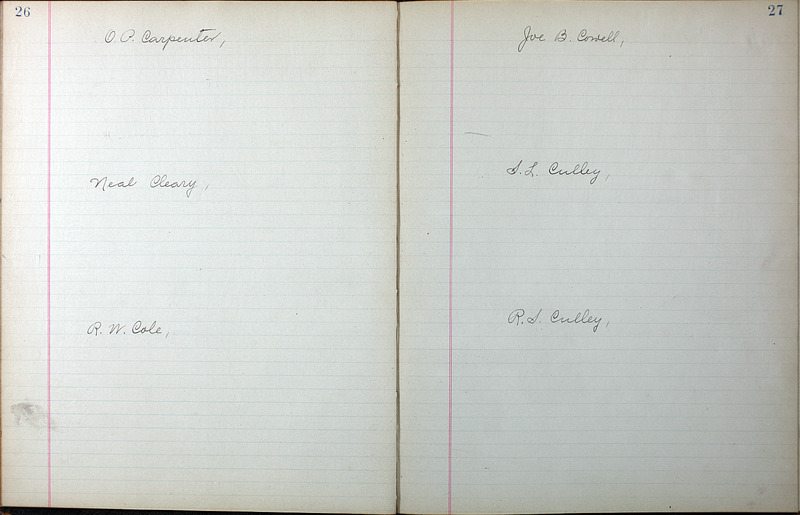 26
O. P. Carpenter,
Neal Cleary,
R. W. Cole,
27
Joe B. Cowell,
S. L. Culley,
R. S. Culley,